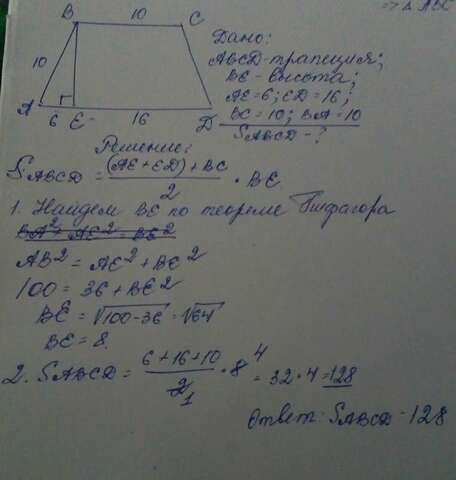 ⇒ △ ABC
B 10 C
10
A 6 E 16 D
Дано:
ABCD-трапеция;
BE-высота;
AE=6; ED=16;
BC=10; BA=10
SABCD-?
Решение:
SABCD = (AE+ED)+BC / 2 · BE.
1. Найдем BE по теореме Пифагора
BA² AE² = BE²
AB² = AE² + BE²
100 = 36 + BE²
BE = √100-36 = √64
BE = 8.
2. SABCD = 6+16+10 / 2 1 · 8 4 = 32·4=128
Ответ: SABCD-128